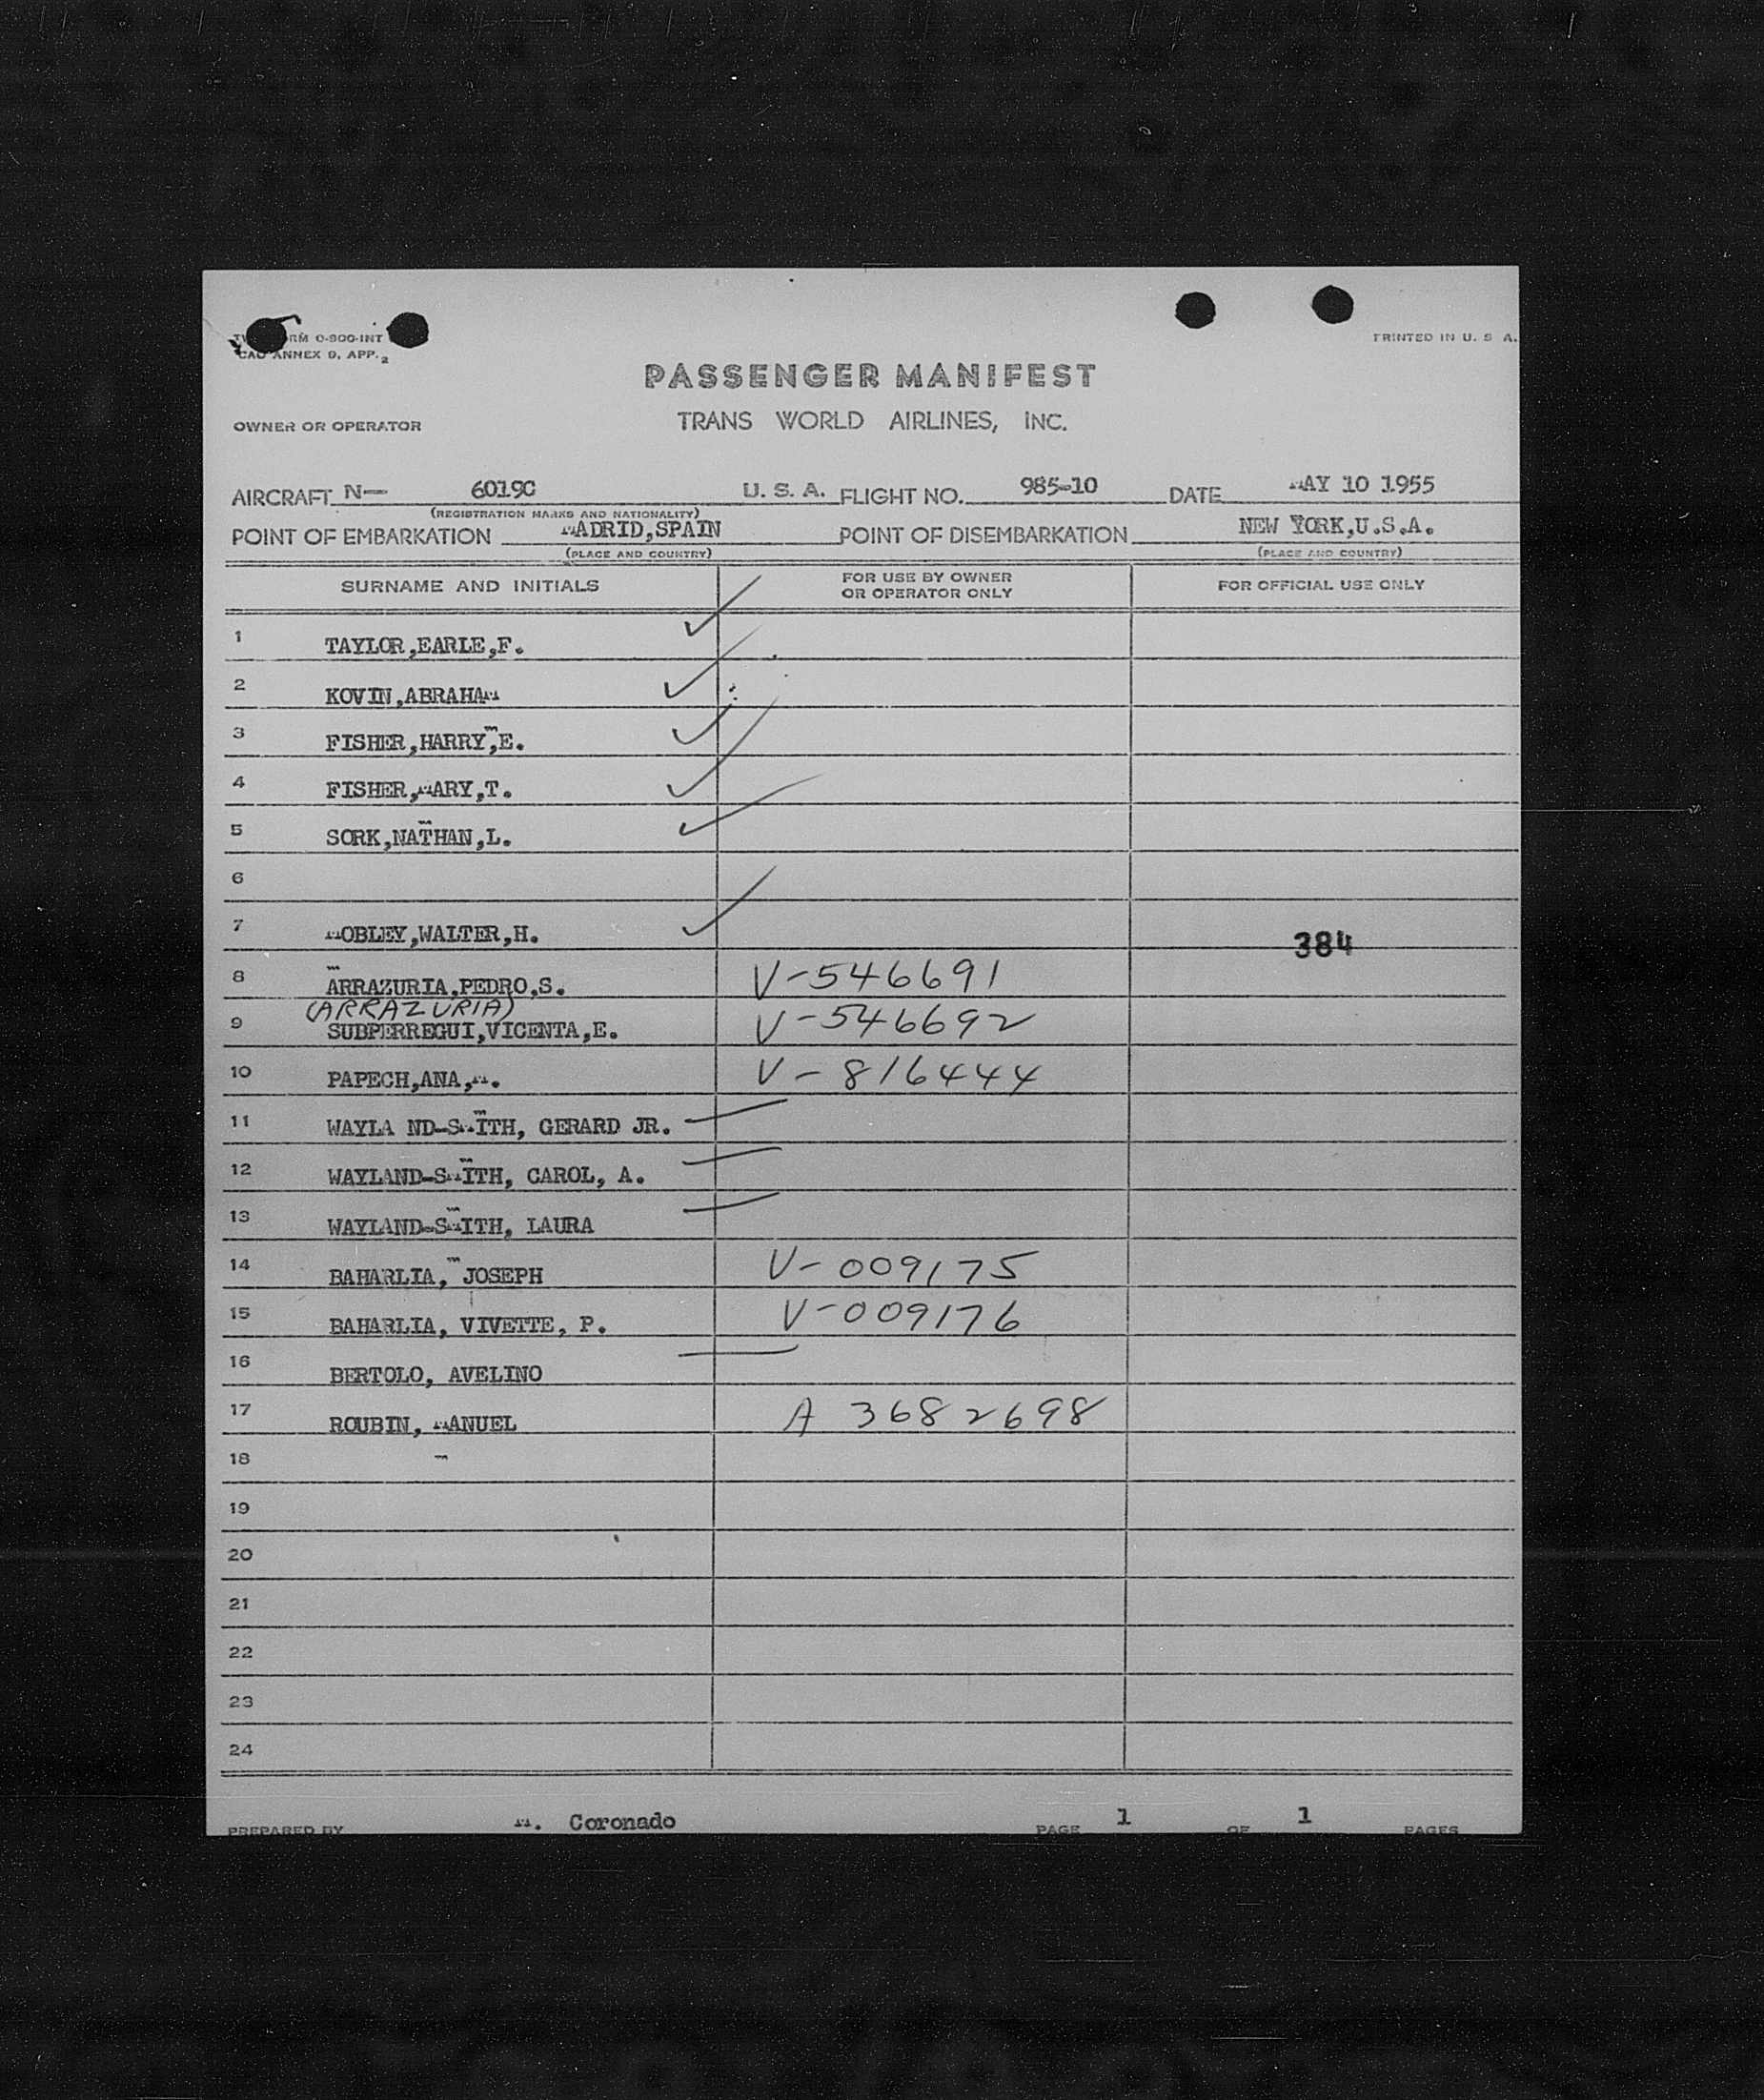 RM 0-900-INT
CAO ANNEX 9, APP. 2
PRINTED IN U. S. A.
PASSENGER MANIFEST
OWNER OR OPERATOR
TRANS WORLD AIRLINES, INC.
AIRCRAFT N- 6019C U. S. A. FLIGHT NO. 985-10 DATE MAY 10 1955
(REGISTRATION MARKS AND NATIONALITY)
POINT OF EMBARKATION MADRID,SPAIN POINT OF DISEMBARKATION NEW YORK,U.S.A.
(PLACE AND COUNTRY) (PLACE AND COUNTRY)
SURNAME AND INITIALS FOR USE BY OWNER OR OPERATOR ONLY FOR OFFICIAL USE ONLY
1 TAYLOR,EARLE,F. ✓
2 KOVIN,ABRAHAM ✓
3 FISHER,HARRY,E. ✓
4 FISHER,MARY,T. ✓
5 SORK,NATHAN,L. ✓
6
7 MOBLEY,WALTER,H. ✓ 384
8 ARRAZURIA,PEDRO,S. V-546691
(ARRAZURIA)
9 SUBPERREGUI,VICENTA,E. V-546692
10 PAPECH,ANA,M. V-816444
11 WAYLA ND-SMITH, GERARD JR.
12 WAYLAND-SMITH, CAROL, A.
13 WAYLAND-SMITH, LAURA
14 BAHARLIA, JOSEPH V-009175
15 BAHARLIA, VIVETTE, P. V-009176
16 BERTOLO, AVELINO
17 ROUBIN, MANUEL A 3682698
18
19
20
21
22
23
24
PREPARED BY M. Coronado PAGE 1 OF 1 PAGES